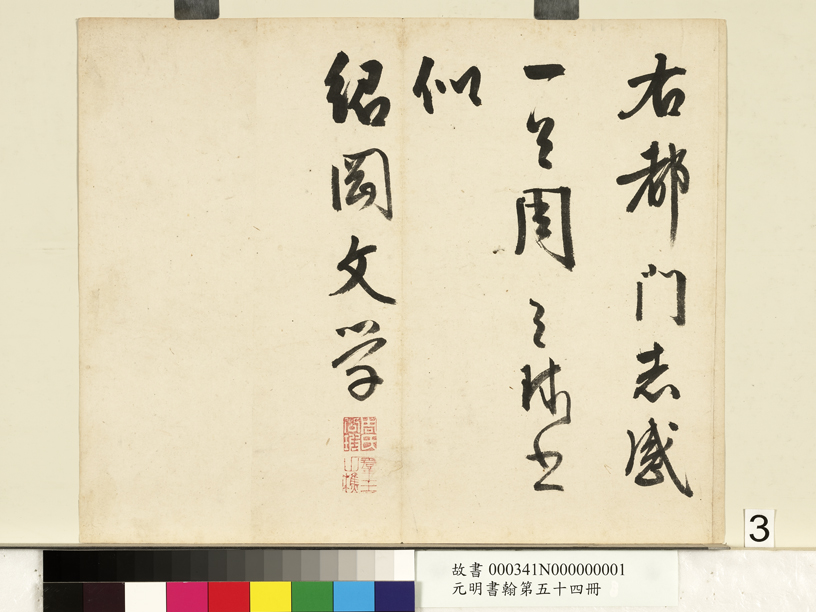 右都門志感
一呈周之球书
似
紹岡文学
3
故書 000341N000000001
元明書翰第五十四冊